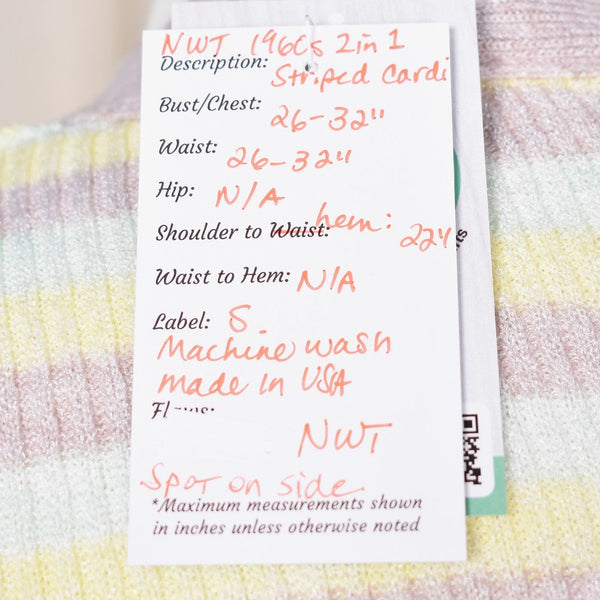 NWT 1960s 2 in 1
Description: Striped Cardi
Bust/Chest: 26-32"
Waist: 26-32"
Hip: N/A
Shoulder to Waist: hem: 22"
Waist to Hem: N/A
Label: S
Machine wash
made in USA
NWT
Spot on side
*Maximum measurements shown
in inches unless otherwise noted